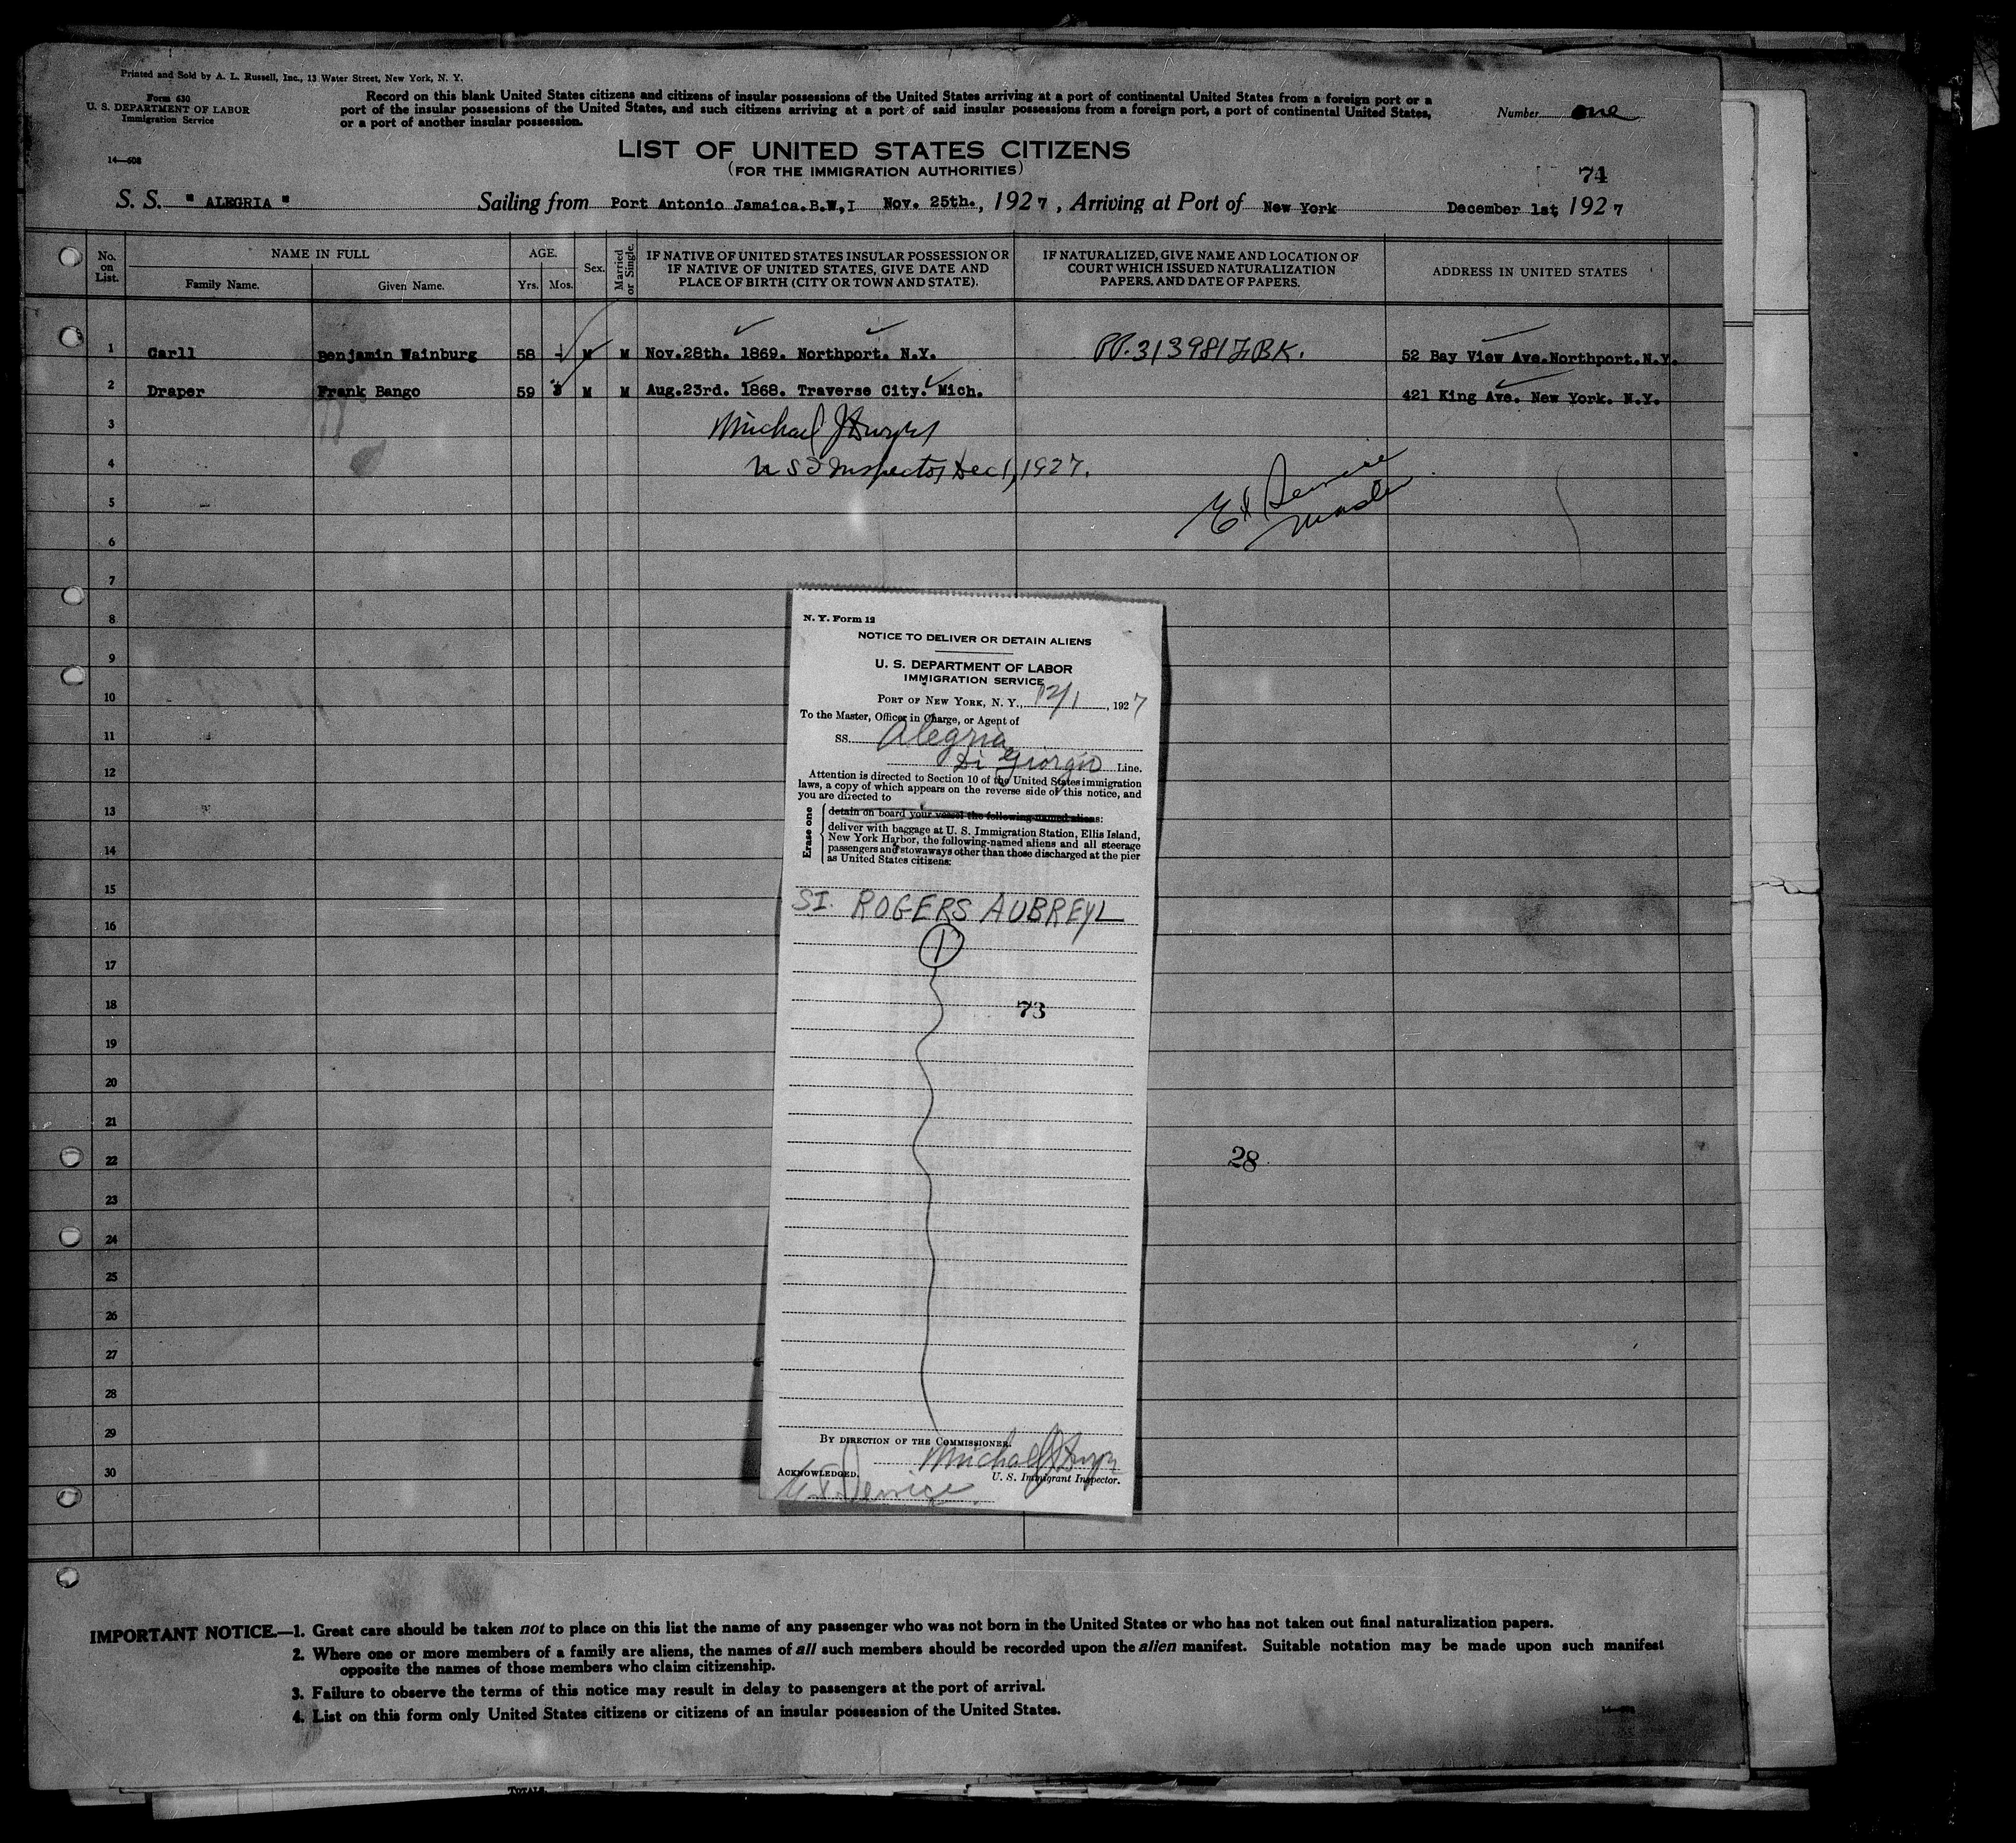 Printed and Sold by A. L. Russell, Inc., 13 Water Street, New York, N. Y.
Form 630
U. S. DEPARTMENT OF LABOR
Immigration Service
14—608
Record on this blank United States citizens and citizens of insular possessions of the United States arriving at a port of continental United States from a foreign port or a
port of the insular possessions of the United States, and such citizens arriving at a port of said insular possessions from a foreign port, a port of continental United States,
or a port of another insular possession.
Number one
LIST OF UNITED STATES CITIZENS
(FOR THE IMMIGRATION AUTHORITIES)
74
S. S. " ALEGRIA " Sailing from Port Antonio Jamaica.B.W,I Nov. 25th., 1927, Arriving at Port of New York December 1st, 1927
No. on List. NAME IN FULL Family Name. Given Name. AGE. Yrs. Mos. Sex. Married or Single.
IF NATIVE OF UNITED STATES INSULAR POSSESSION OR
IF NATIVE OF UNITED STATES, GIVE DATE AND
PLACE OF BIRTH (CITY OR TOWN AND STATE).
IF NATURALIZED, GIVE NAME AND LOCATION OF
COURT WHICH ISSUED NATURALIZATION
PAPERS. AND DATE OF PAPERS.
ADDRESS IN UNITED STATES
1 Carll Benjamin Wainburg 58 M M Nov.28th. 1869. Northport. N.Y. PP.313981 BK. 52 Bay View Ave.Northport.N.Y.
2 Draper Frank Bango 59 3 M M Aug.23rd. 1868. Traverse City. Mich. 421 King Ave. New York. N.Y.
3 Michael J
4 U S I Inspector Dec 1, 1927.
5
6
7
8
9
10
11
12
13
14
15
16
17
18
19
20
21
22 28
23
24
25
26
27
28
29
30
N. Y. Form 12
NOTICE TO DELIVER OR DETAIN ALIENS
U. S. DEPARTMENT OF LABOR
IMMIGRATION SERVICE
PORT OF NEW YORK, N. Y., 12/1, 1927
To the Master, Officer in Charge, or Agent of
SS. Alegria
Di Giorgio Line.
Attention is directed to Section 10 of the United States immigration
laws, a copy of which appears on the reverse side of this notice, and
you are directed to
Erase one
detain on board your vessel the following-named aliens:
deliver with baggage at U. S. Immigration Station, Ellis Island,
New York Harbor, the following-named aliens and all steerage
passengers and stowaways other than those discharged at the pier
as United States citizens:
SI. ROGERS AUBREY L
1
73
BY DIRECTION OF THE COMMISSIONER.
Michael J
ACKNOWLEDGED. U. S. Immigrant Inspector.
IMPORTANT NOTICE.—1. Great care should be taken not to place on this list the name of any passenger who was not born in the United States or who has not taken out final naturalization papers.
2. Where one or more members of a family are aliens, the names of all such members should be recorded upon the alien manifest. Suitable notation may be made upon such manifest
opposite the names of those members who claim citizenship.
3. Failure to observe the terms of this notice may result in delay to passengers at the port of arrival.
4. List on this form only United States citizens or citizens of an insular possession of the United States.
TOTALS.